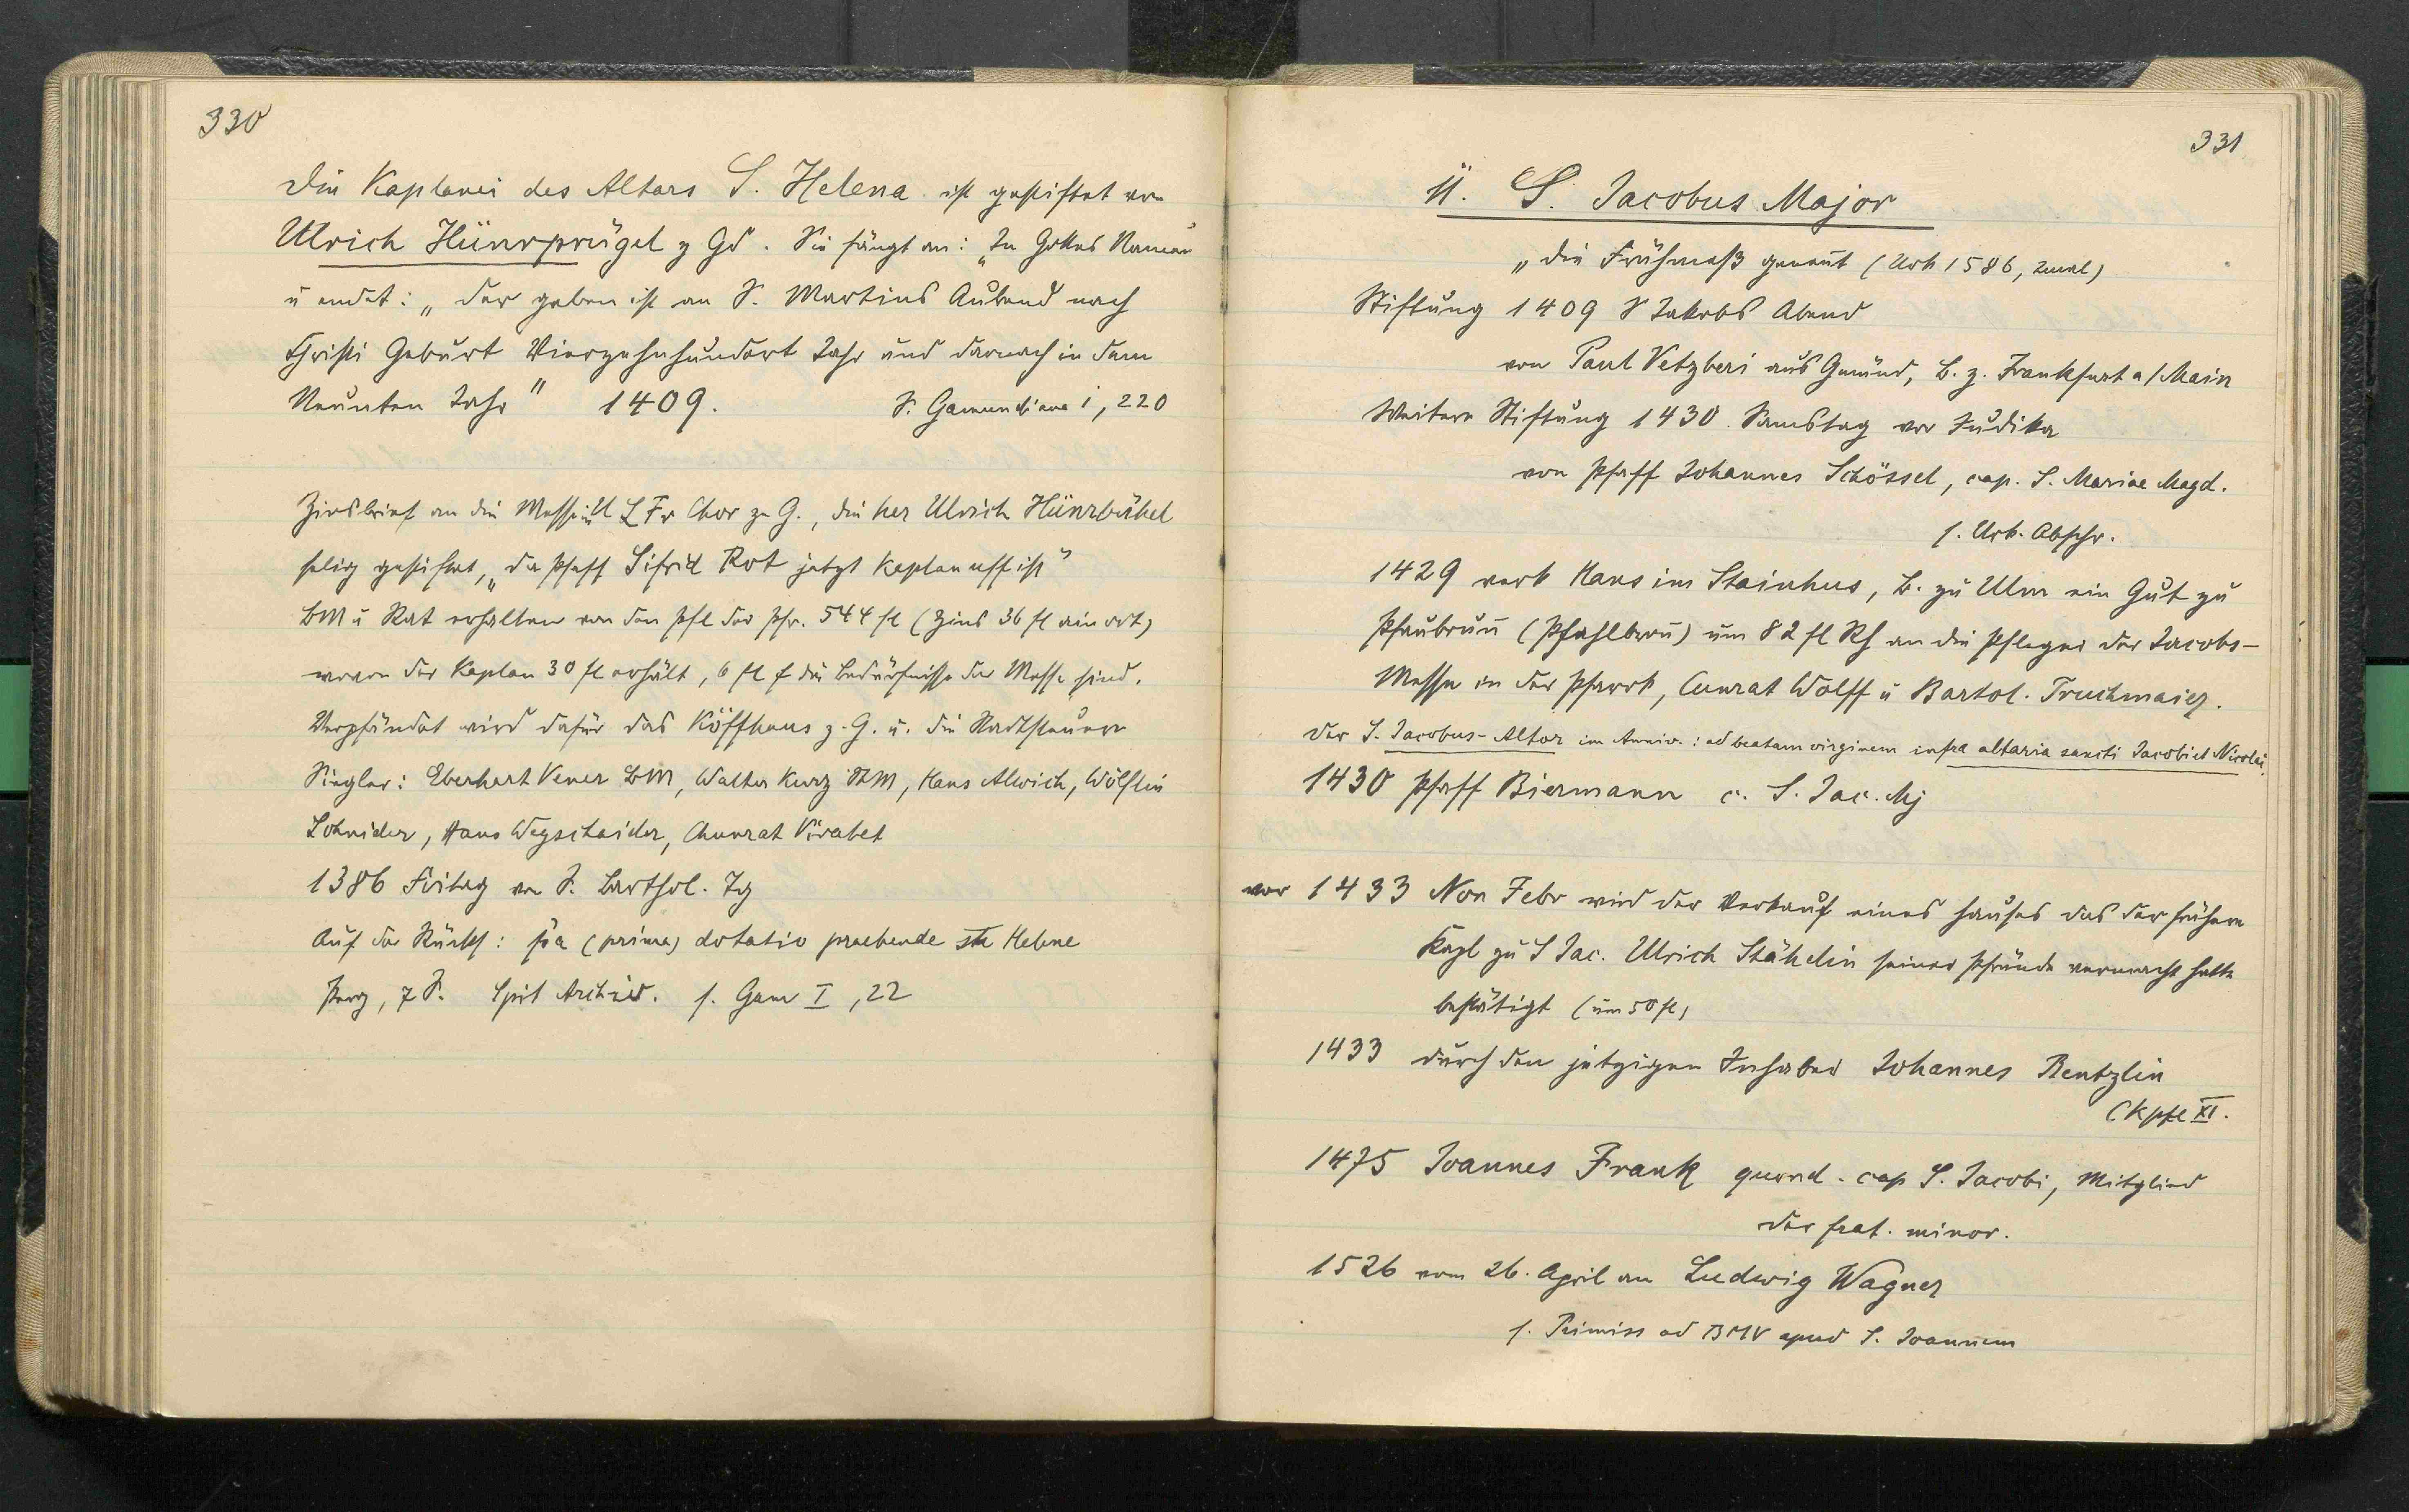 330
Die Kaplanei des Altars S. Helena ist gestiftet von
Ulrich Hünrprügel z Gd. Sie fängt an: „In Gottes Namen"
u endet: „der geben ist an S. Martins Aubend nach
Christi Geburt Vierzehnhundert Jahr und darnach in dem
Neunten Jahr" 1409. S. Gamundiana i, 220
Zinsbrief an die Messe in U L Fr Chor zu G., die her Ulrich Hünrbühel
selig gestiftet, „da Pfaff Sifrid Rot jetzt Kaplan uff ist"
BM u Rat erhalten von den Pfl der Pfr. 544 fl (Zins 36 fl ain ort)
wovon der Kaplan 30 fl erhält, 6 fl f die Bedürfnisse der Messe sind.
Verpfändet wird dafür das Köffhaus z. G. u. die Stadtsteuern
Siegler: Eberhart Vener BM, Walter Kurz StM, Hans Alwich, Wölflin
Schnider, Hans Wegschaider, Chunrat Virabet
1386 Fritag vor S. Barthol. Tg
Auf der Rücks: pa (prima) dotatio praebende ste Helene
Perg, 7 S. Spit Archiv. s. Gam I, 22
331
11. S. Jacobus Major
„die Frühmeß genannt (Urk 1586, 2mal)
Stiftung 1409 S Jakobs Abend
von Paul Vetzberi aus Gmünd, B. z. Frankfurt a/Main
Weitere Stiftung 1430. Samstag vor Judika
von Pfaff Johannes Schössel, cap. S. Mariae Magd.
s. Urk. Abschr.
1429 verk Hans im Stainhus, B. zu Ulm ein Gut zu
Pfaubrun̄ (Pfahlbron̄) um 82 fl Rh an die Pfleger der Jacobs-
Messe in der Pfarrk, Cunrat Wolff u Bartol. Truchmaier.
Der S. Jacobus-Altar im Anniv.: ad beatam virginem infra altaria sancti Jacobi et Nicolai.
1430 Pfaff Biermann c. S. Jac. Mj
vor 1433 Non Febr wird der Verkauf eines Hauses das der frühere
Kapl zu S Jac. Ulrich Stähelin seiner Pfründe vermacht hatte
bestätigt (um 50 fl)
1433 durch den jetzigen Inhaber Johannes Rentzlin
(Kpfl XI.
1475 Joannes Frank quond. cap S. Jacobi, Mitglied
der frat. minor.
1526 vom 26. April an Ludwig Wagner
s. Primiss ad BMV apud S. Joannem